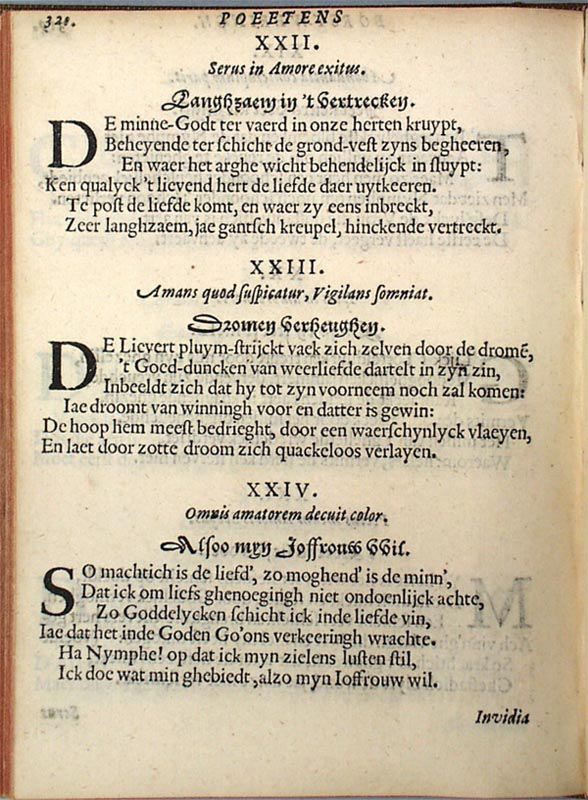 328.
POEETENS
XXII.
Serus in Amore exitus.
Langhzaem in 't Vertrecken.
DE minne-Godt ter vaerd in onze herten kruypt,
Beheyende ter schicht de grond-vest zyns begheeren,
En waer het arghe wicht behendelijck in sluypt:
Ken qualyck 't lievend hert de liefde daer uytkeeren.
Te post de liefde komt, en waer zy eens inbreckt,
Zeer langhzaem, jae gantsch kreupel, hinckende vertreckt.
XXIII.
Amans quod suspicatur, Vigilans somniat.
Dromen Verheughen.
DE Lievert pluym-strijckt vack zich zelven door de dromē,
't Goed-duncken van weerliefde dartelt in zyn zin,
Inbeeldt zich dat hy tot zyn voorneem noch zal komen:
Iae droomt van winningh voor en datter is gewin:
De hoop hem meest bedrieght, door een waerschynlyck vlaeyen,
En laet door zotte droom zich quackeloos verlayen.
XXIV.
Omnis amatorem decuit color.
Alsoo myn Joffrouw Wil.
SO machtich is de liefd', zo moghend' is de minn',
Dat ick om liefs ghenoegingh niet ondoenlijck achte,
Zo Goddelycken schicht ick inde liefde vin,
Iae dat het inde Goden Go'ons verkeeringh wrachte.
Ha Nymphe! op dat ick myn zielens lusten stil,
Ick doe wat min ghebiedt, alzo myn Ioffrouw wil.
Invidia